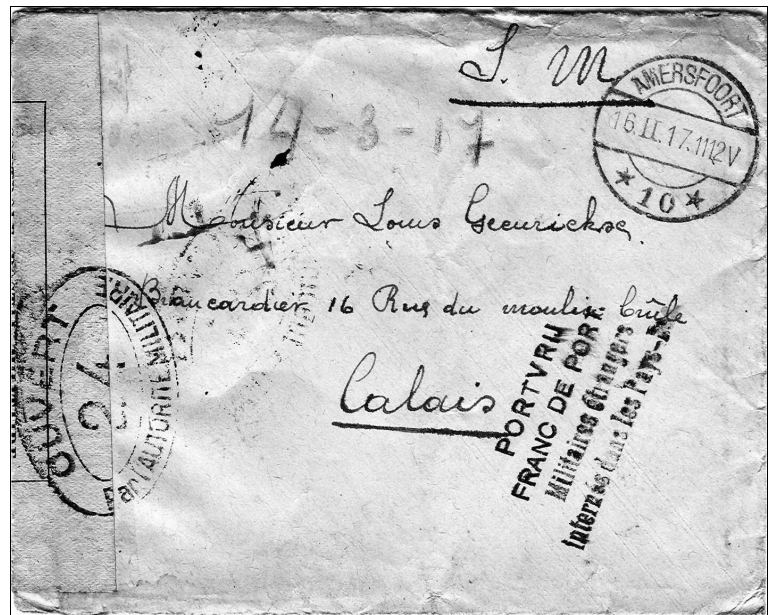 S. M.
AMERSFOORT
16.II.17.1112V
* 10 *
14-3-17
Monsieur Louis
Brancardier 16 Rue du moulin brûle
Calais
PORTVRIJ
FRANC DE PORT
Militaires étrangers
internés dans les Pays-
OUVERT
24
par l'AUTORITÉ MILITAIRE